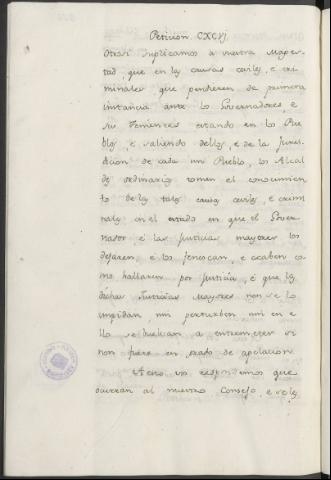 Peticion CXCVj.
Otrosi suplicamos a vuestra Mages-
tad, que en las causas civiles, e cri
minales que pendieren de primera
instancia ante los Governadores, e
sus Tenientes estando en los Pue
blos, e saliendo dellos, e de la Juris
dicion de cada un Pueblo, los Alcal
des ordinarios tomen el conocimien
to de las tales causas civiles, e crimi
nales en el estado en que el Gover
nador e las Justicias mayores los
dejaren, e los fenescan, e acaben co
mo hallaren por Justicia, e que las
dichas Justicias Mayores non se lo
impidan, nin perturben nin en e
llo se buelvan a entremeter si
non fuere en grado de apelacion
A esto vos respondemos que
ocurran al nuestro Consejo, e se les